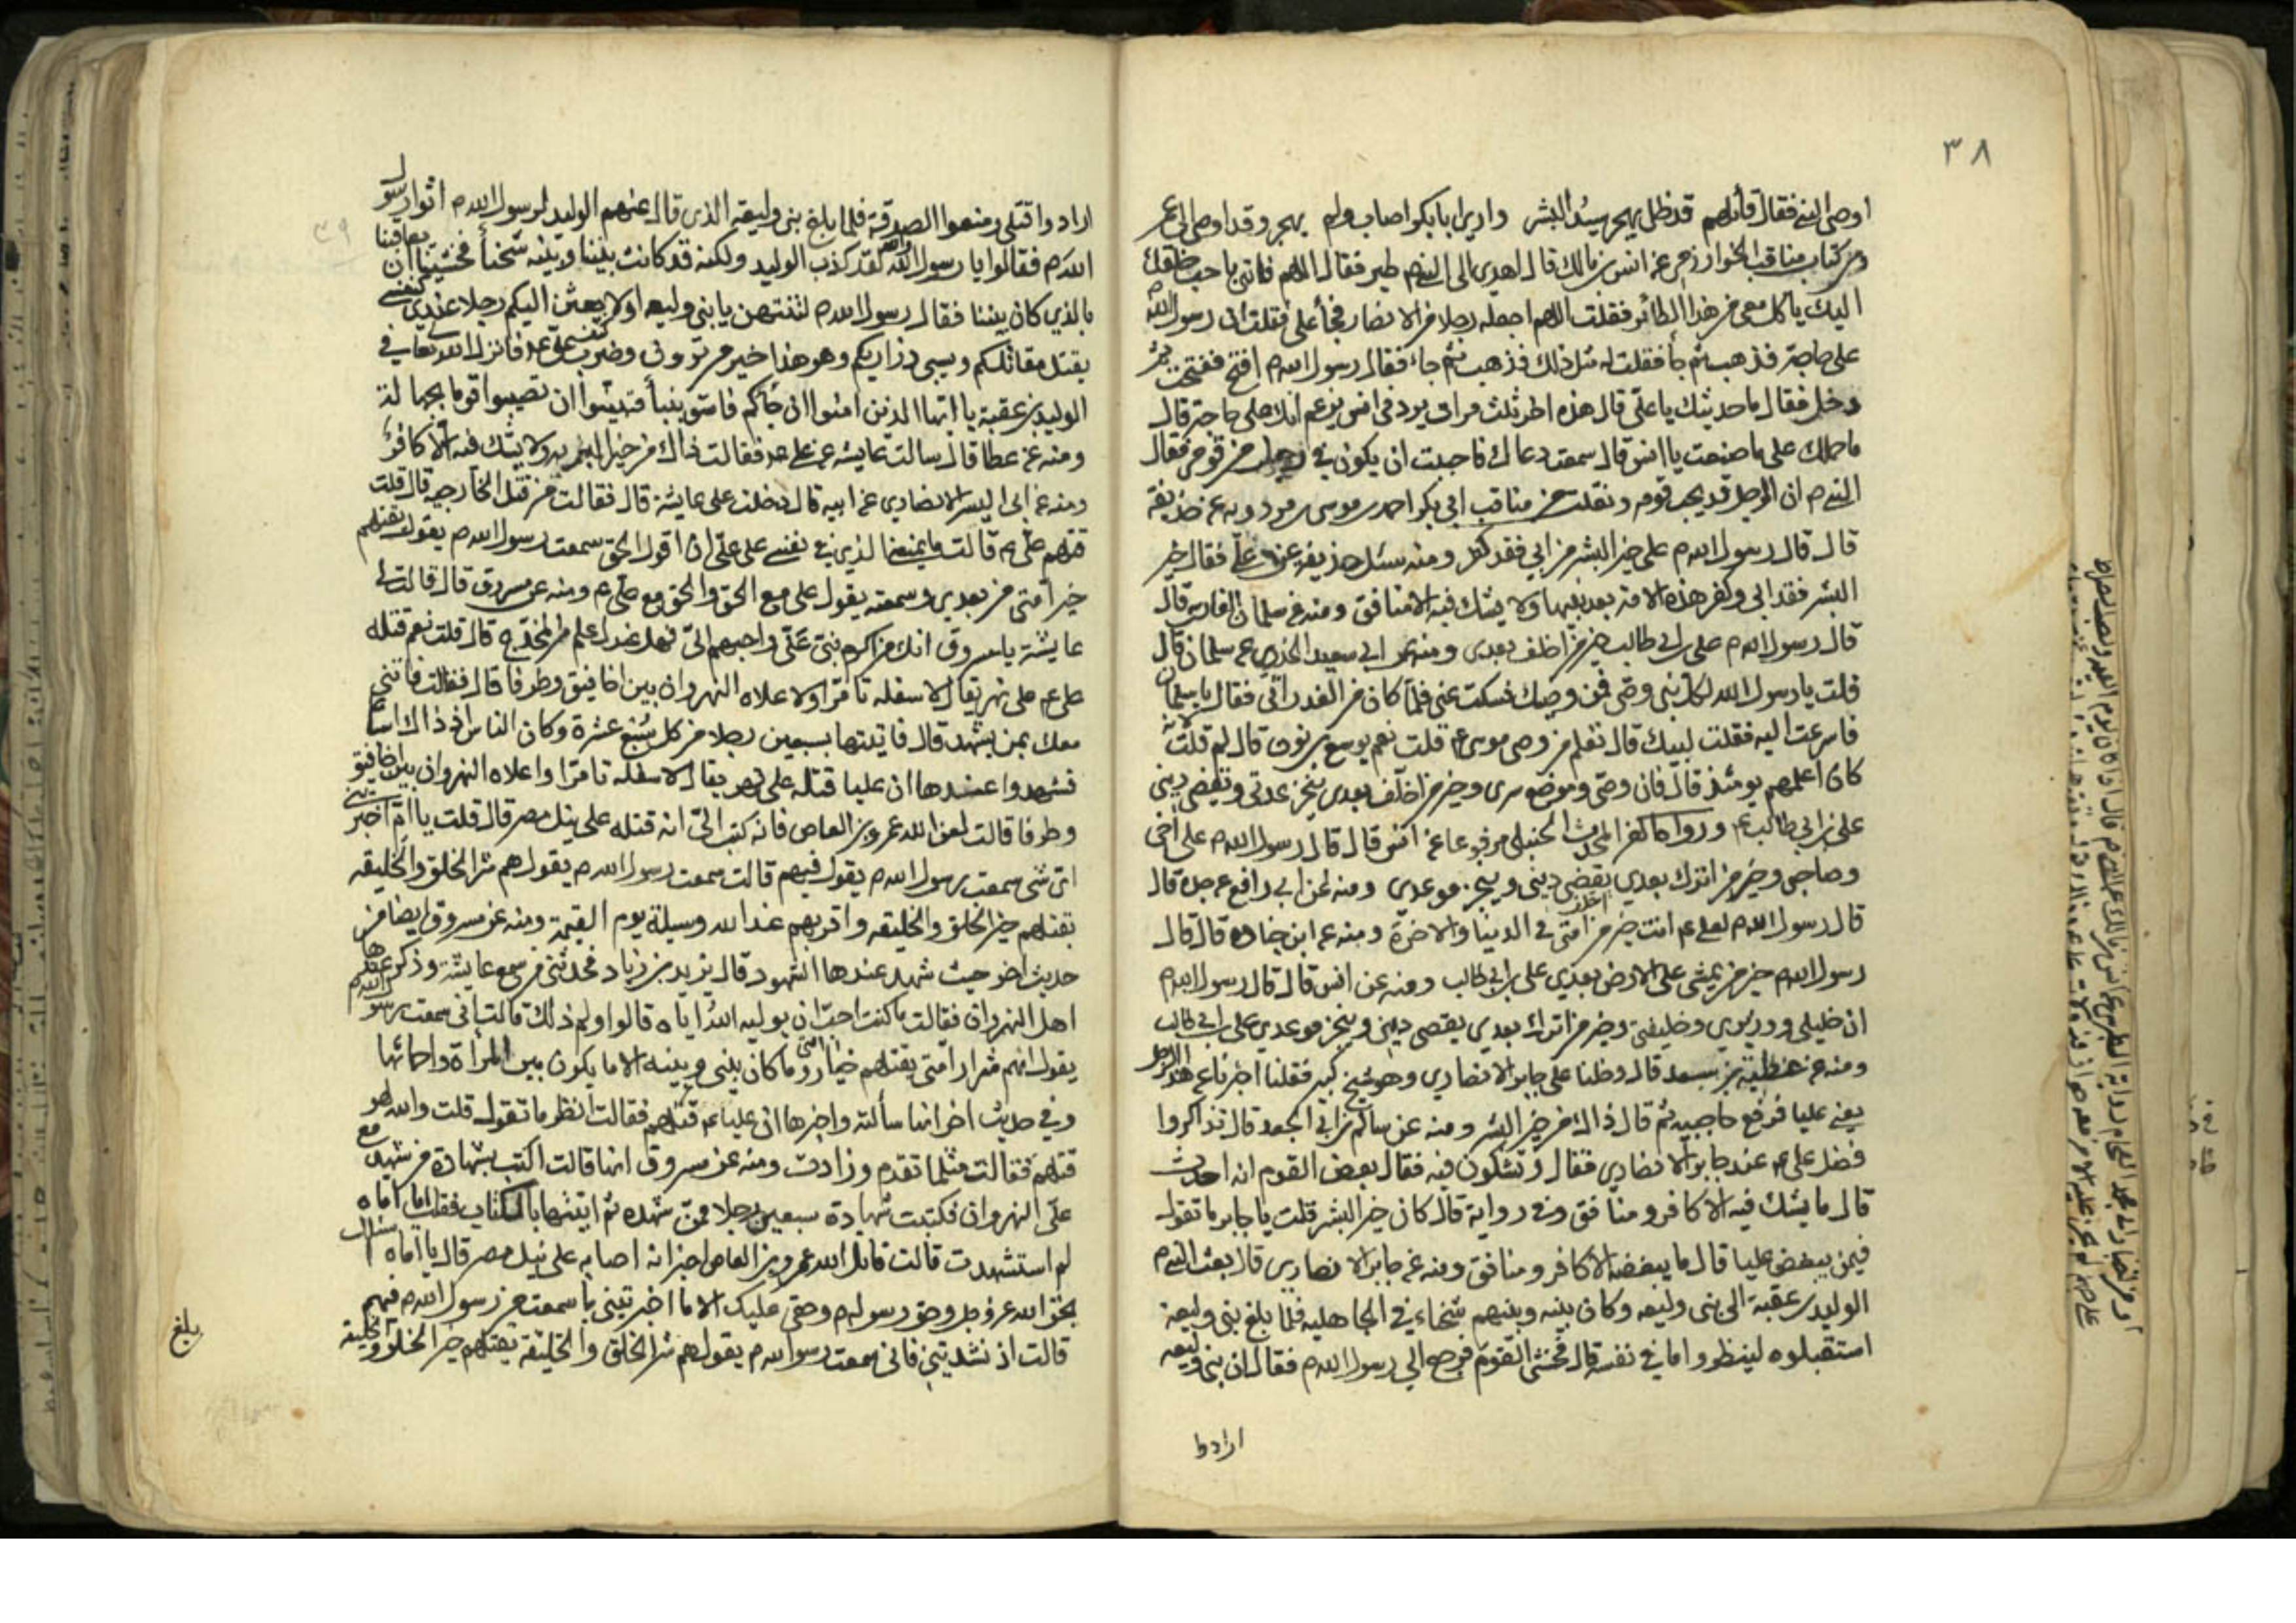 ٣٨
اوصى النبي فقال قائلهم قد ظل يهجر سيد البشر وارى ابا بكر اصاب ولم يهجر وقد اوصى الى عمر
ومن كتاب مناقب الخوارزمي عن انس بن مالك قال اهدي الى النبي م طير فقال اللهم فاتني باحب خلقك
اليك ياكل معي من هذا الطائر فقلت اللهم اجعله رجلا من الانصار فجأ علي فقلت ان رسول الله
على حاجة فذهب ثم جأ فقلت له مثل ذلك فذهب ثم جاء فقال رسول الله م افتح ففتحت ثم
دخل فقال ما حديثك يا علي قال هذه اخر ثلث مرات يردني انس يزعم انك على حاجة قال
ما حملك على ما صنعت يا انس قال سمعت دعاك فاحببت ان يكون في رجل من قومي فقال
النبي م ان الرجل قد يحب قومه ونقلت من مناقب ابي بكر احمد بن موسى بن مردويه عن حذيفة
قال قال رسول الله م علي خير البشر من ابي فقد كفر ومنه سئل حذيفه عن علي فقال خير
البشر فقد ابى وكفر هذه الامة بعد نبيها ولا يشك فيه الا منافق ومنه عن سلمان الفارسي قال
قال رسول الله م علي بن ابي طالب خير من اخلف بعدي ومنه عن ابي سعيد الخدري عن سلمان قال
قلت يا رسول الله لكل نبي وصي فمن وصيك فسكت عني فلما كان من الغد راني فقال يا سلمان
فاسرعت اليه فقلت لبيك قال تعلم من وصي موسى ع قلت نعم يوشع بن نون قال لم قلت لانه
كان اعلمهم يومئذ قال فان وصيي وموضع سري وخير من اخلف بعدي ينجز عدتي ويقضي ديني
علي بن ابي طالب ع وروا المحدث الحنبلي مرفوعا عن انس قال قال رسول الله م علي اخي
وصاحبي وخير من اترك بعدي يقضي ديني وينجز موعدي ومنه عن ابي رافع عن جده قال
قال رسول الله م لعلي ع انت خير من امتي في الدنيا والاخرة ومنه عن ابن جناده قال قال
رسول الله م خير من يمشي على الارض بعدي علي بن ابي طالب ومنه عن انس قال قال رسول الله م
ان خليلي ووزيري وخليفتي وخير من اترك بعدي يقضي ديني وينجز موعدي علي بن ابي طالب
ومنه عن عطية بن سعد قال دخلنا على جابر الانصاري وهو شيخ كبير فقلنا اخبرنا عن هذا الرجل
يعني عليا فرفع حاجبيه ثم قال ذاك من خير البشر ومنه عن سالم بن ابي الجعد قال تذاكروا
فضل علي ع عند جابر الانصاري فقال وتشكون فيه فقال بعض القوم انه احدث
قال ما يشك فيه الا كافر ومنافق وفي رواية قال كان خير البشر قلت يا جابر ما تقول
فيمن يبغض عليا قال ما يبغضه الا كافر ومنافق ومنه عن جابر الانصاري قال بعث النبي م
الوليد بن عقبة الى بني وليعه وكان بينه وبينهم شحناء في الجاهليه فلما بلغ بني وليعة
استقبلوه لينظروا ما في نفسه قال فخشي القوم فرجع الى رسول الله م فقال ان بني وليعه
ارادوا
ارادوا قتلي ومنعوا الصدقة فلما بلغ بني وليعة الذي قال عنهم الوليد لرسول الله م اتوا رسول
الله م فقالوا يا رسول الله لقد كذب الوليد ولكنه قد كانت بيننا وبينه شحنأ فخشينا ان يعاقبنا
بالذي كان بيننا فقال رسول الله م لتنتهن يا بني وليعه او لابعثن اليكم رجلا عندي كنفسي
يقتل مقاتلكم ويسبي ذراريكم وهو هذا خير من ترون وضرب على كتف علي ع فانزل الله تعالى في
الوليد بن عقبة يا ايها الذين امنوا ان جأكم فاسق بنبأ فتبينوا ان تصيبوا قوما بجهالة
ومنه عن عطا قال سالت عايشه عن علي ع فقالت ذاك من خير البريه ولا يشك فيه الا كافر
ومنه عن ابي اليسر الانصاري عن ابيه قال دخلت على عايشة قال فقالت من قتل الخارجيه قال قلت
قتلهم علي ع قالت ما يمنعني الذي في نفسي على علي ان اقول الحق سمعت رسول الله م يقول يقتلهم
خير امتي من بعدي وسمعته يقول علي مع الحق والحق مع علي ع ومنه عن مسروق قال قالت لي
عايشة يا مسروق انك من اكرم بني علي واحبهم الي فهل عندك علم من المخدج قال قلت نعم قتله
علي ع على نهر يقال لاسفله تامرا ولاعلاه النهروان بين اخافيق وطرفا قال فقالت فاتني
معك بمن يشهد قال فاتيتها بسبعين رجلا من كل سبع عشرة وكان الناس اذ ذاك اسباعا
فشهدوا عندها ان عليا قتله على نهر يقال لاسفله تامرا واعلاه النهروان بين اخافيق
وطرفا قالت لعن الله عمرو بن العاص فانه كتب الي انه قتله على نيل مصر قال قلت يا ام اخبريني
اي شي سمعت رسول الله م يقول فيهم قالت سمعت رسول الله م يقول هم شر الخلق والخليقه
يقتلهم خير الخلق والخليقه واقربهم عند الله وسيلة يوم القيمة ومنه عن مسروق ايضا من
حديث اخر حيث شهد عندها الشهود قال يزيد بن زياد فحدثني من سمع عايشة وذكر عندها
اهل النهروان فقالت ما كنت احب ان يوليه الله اياه قالوا ولم ذلك قالت اني سمعت رسول الله م
يقول انهم شرار امتي يقتلهم خيار امتي وما كان بيني وبينه الا ما يكون بين المرأة واحمائها
وفي حديث اخر انها سألته واخبرها ان عليا ع قتلهم فقالت انظر ما تقول قلت والله لهو
قتلهم فقالت مثلما تقدم وزادت ومنه عن مسروق انها قالت اكتب بشهادة من شهد مع
علي النهروان فكتبت شهادة سبعين رجلا ممن شهده ثم اتيتها بالكتاب فقلت يا اماه
لم استشهدت قالت قاتل الله عمرو بن العاص اخبر انه اصابه على نيل مصر قال يا اماه اسالك
بحق الله عز وجل وحق رسوله م وحقي عليك الا ما اخبرتيني بما سمعت من رسول الله م فيهم
قالت اذ نشدتني فاني سمعت رسول الله م يقول هم شر الخلق والخليقة يقتلهم خير الخلق والخليقة
بلغ